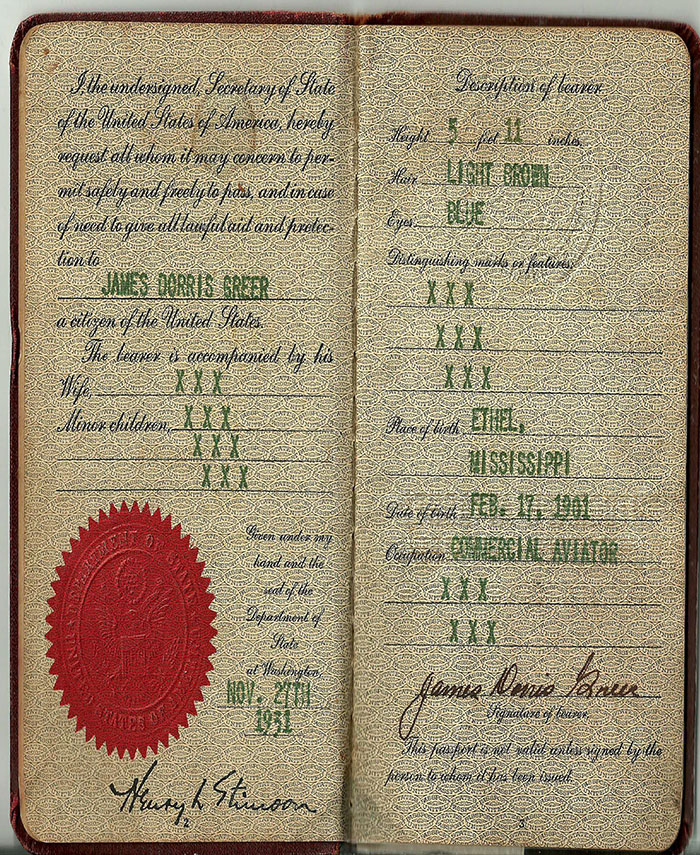 I, the undersigned, Secretary of State
of the United States of America, hereby
request all whom it may concern to per-
mit safely and freely to pass, and in case
of need to give all lawful aid and protec-
tion to
JAMES DORRIS GREER
a citizen of the United States.
The bearer is accompanied by his
Wife, XXX
Minor children, XXX
XXX
XXX
Given under my
hand and the
seal of the
Department of
State
at Washington,
NOV. 27TH
1931
DEPARTMENT OF STATE
UNITED STATES OF
Henry L Stimson
2
Description of bearer
Height 5 feet 11 inches.
Hair LIGHT BROWN
Eyes BLUE
Distinguishing marks or features:
XXX
XXX
XXX
Place of birth ETHEL,
MISSISSIPPI
Date of birth FEB. 17, 1901
Occupation COMMERCIAL AVIATOR
XXX
XXX
James Dorris Greer
Signature of bearer.
This passport is not valid unless signed by the
person to whom it has been issued.
3